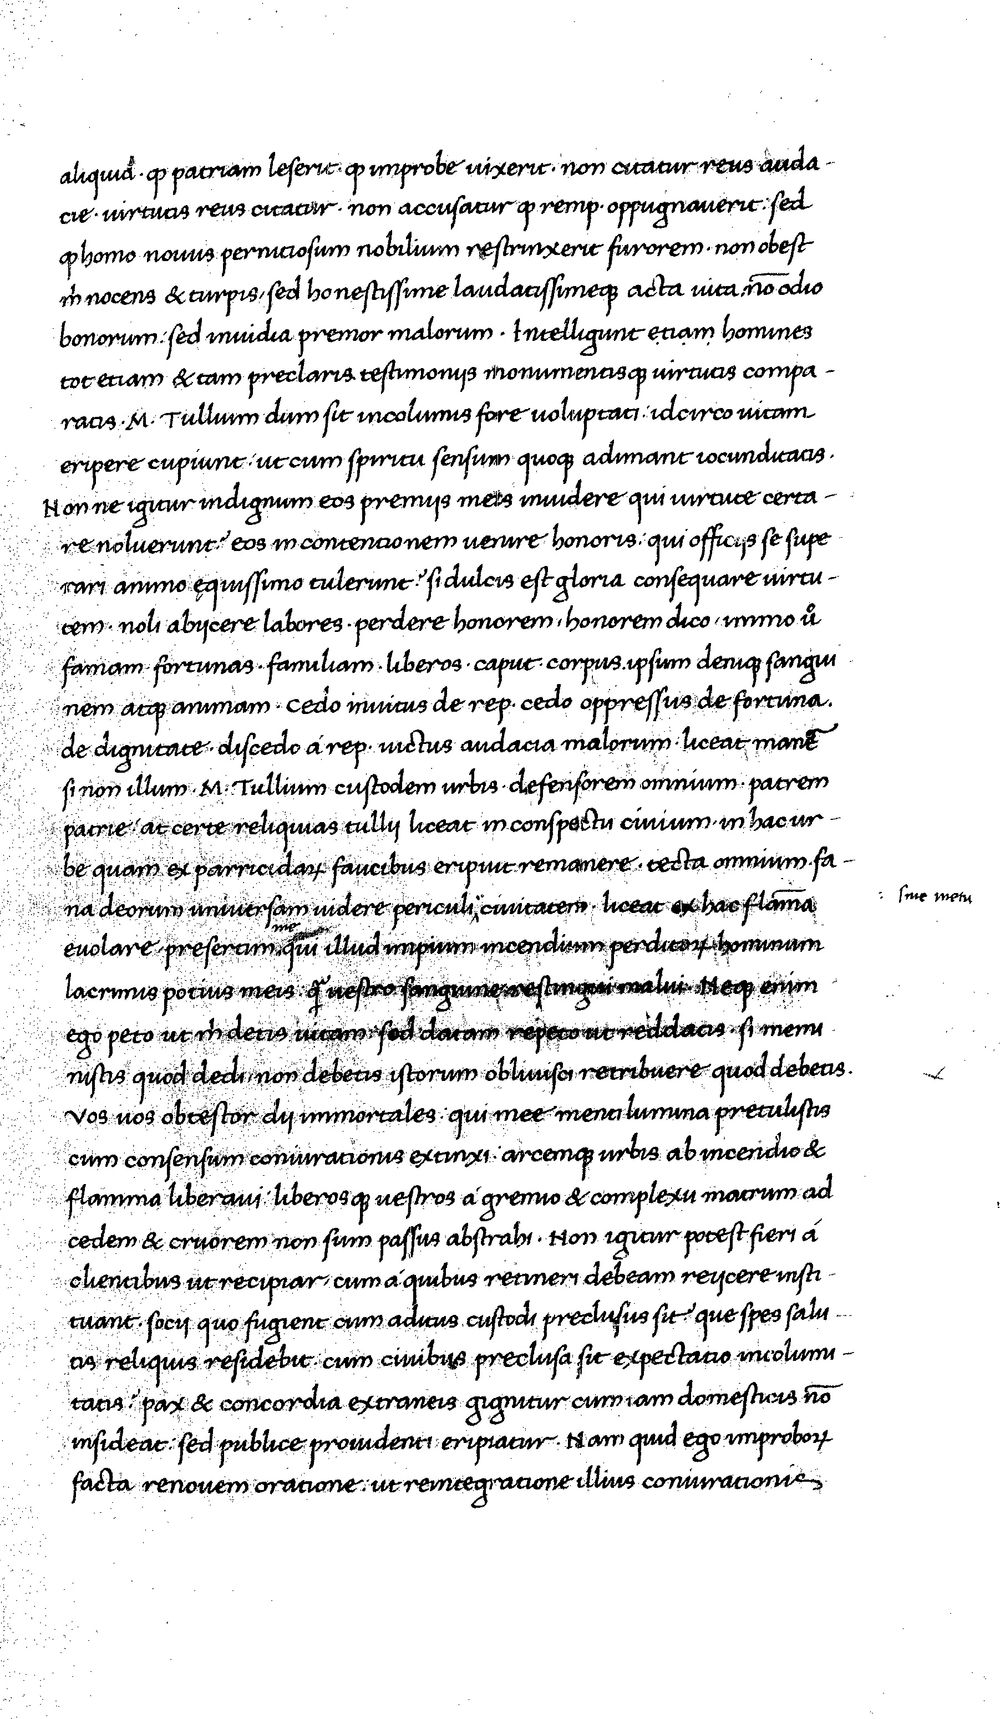 aliquid · ꝙ patriam leserit · ꝙ improbe uixerit · non citatur reus auda-
cie · uirtutis reus citatur · non accusatur ꝙ remp· oppugnauerit : sed
ꝙ homo nouus perniciosum nobilium restrinxerit furorem · non obest
m̄ nocens & turpis, sed honestissime laudatissimeqꝫ acta uita, nō odio
bonorum : sed inuidia premor malorum · Intelligunt etiam homines
tot etiam & tam preclaris testimonijs monumentisqꝫ uirtutis compa-
ratis · M· Tullium dum sit incolumis fore uoluptati : idcirco uitam
eripere cupiunt : ut cum spiritu sensum quoqꝫ adimant iocunditatis ·
Non ne igitur indignum eos premijs meis inuidere qui uirtute certa-
re noluerunt ? eos in contentionem uenire honoris : qui officijs se supe
rari animo ęquissimo tulerunt ? si dulcis est gloria consequare uirtu-
tem · noli abijcere labores · perdere honorem, honorem dico, immo uͦ
famam · fortunas · familiam · liberos · caput · corpus ipsum deniqꝫ sangui
nem atqꝫ animam · Cedo inuitus de rep· cedo oppressus de fortuna ·
de dignitate · discedo á rep· uictus audacia malorum · liceat manē
si non illum · M· Tullium custodem urbis · defensorem omnium · patrem
patrie : at certe reliquias tullij liceat in conspectu ciuium · in hac ur-
be quam ex parricidaꝝ faucibus eripuit remanere · tecta omnium · fa-
na deorum uniuersam uidere periculi ciuitatem · liceat ex hac flāma
: sine metu
euolare · presertim me qui illud impium incendium perditoꝝ hominum
lacrimis potius meis · ꝗ̃ uestro sanguine restingui malui · Neqꝫ enim
ego peto ut m̄ detis uitam · sed datam repeto ut reddatis · si memi
nistis quod dedi, non debetis istorum obliuisci retribuere quod debetis ·
Vos uos obtestor dij immortales · qui mee menti lumina pretulistis
cum consensum coniurationis extinxi · arcemqꝫ urbis ab incendio &
flamma liberaui · liberosqꝫ uestros á gremio & complexu matrum ad
cedem & cruorem non sum passus abstrahi · Non igitur potest fieri á
clientibus ut recipiar, cum á quibus retineri debeam reijcere insti-
tuant · socij quo fugient cum aditus custodi preclusus sit ? que spes salu-
tis reliquis residebit · cum ciuibus preclusa sit expectatio incolumi-
tatis ? pax & concordia extraneis gignitur cum iam domesticis nō
insideat : sed publice prouidenti eripiatur · Nam quid ego improboꝝ
facta renouem oratione · ut reintegratione illius coniurationis